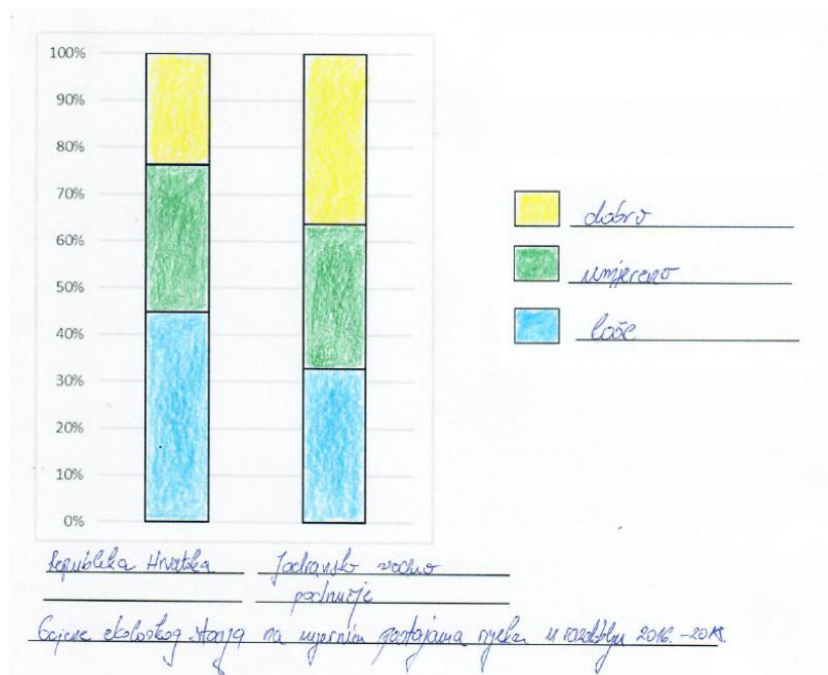 100%
90%
80%
70%
60%
50%
40%
30%
20%
10%
0%
dobro
umjereno
loše
Republika Hrvatska
Jadransko vodno
područje
Ocjene ekološkog stanja na mjernim postajama rijeka u razdoblju 2016.-2018.